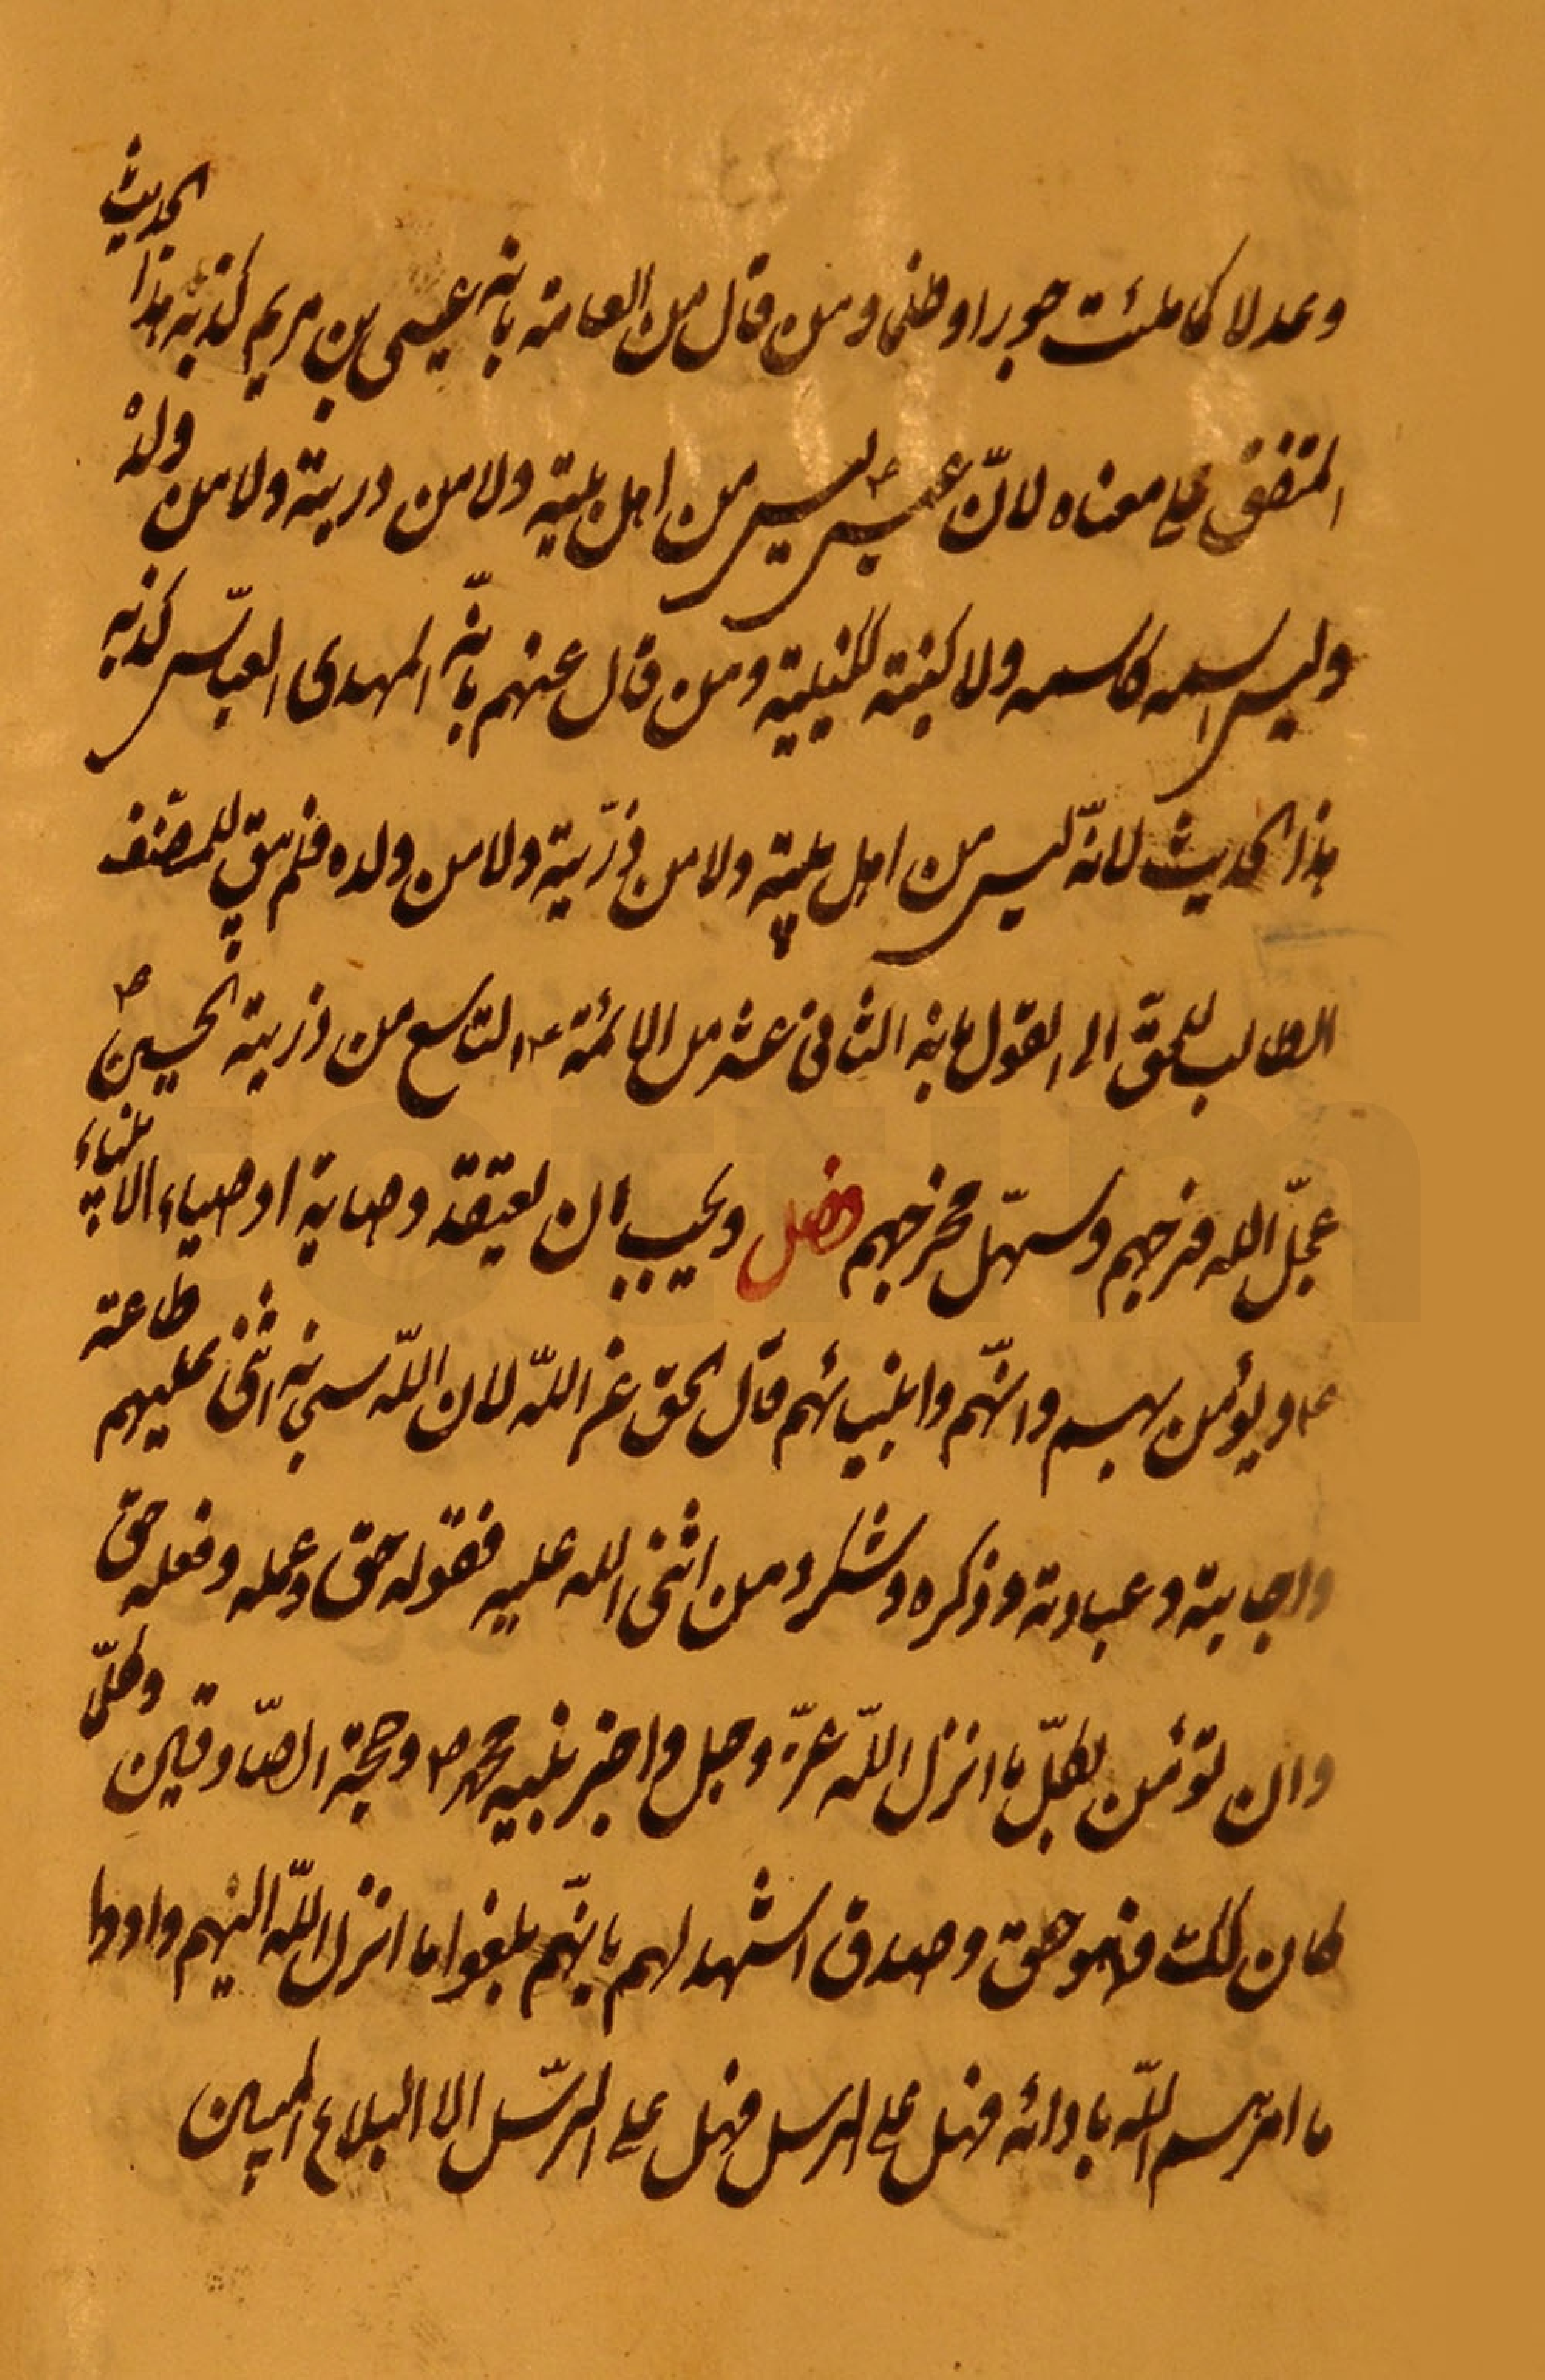 وعدلا كما ملئت جورا وظلما ومن قال من العامة بانه عيسى بن مريم كذبه هذا الحديث
المتفق على معناه لان عيسى ع ليس من اهل بيته ولا من ذريته ولا من ولده
وليس اسمه كاسمه ولا كنيته ككنيته ومن قال عنهم بانه المهدى العباسى كذبه
هذا الحديث لانه ليس من اهل بيته ولا من ذريته ولا من ولده فلم يبق للمصنف
الطالب للحق الى القول بانه الثانى عشر من الائمة ع التاسع من ذرية الحسين ص
عجل الله فرجهم وسهل مخرجهم فصل ويجب ان يعتقد وصاية اوصياء الانبياء
ع ويؤمن بهم وانهم وانبيائهم قال الحق عن الله لان الله سبحانه اثنى عليهم طاعته
واجابته وعبادته وذكره وشكره ومن اثنى الله عليه فقوله حق وعمله وفعله حق
وان تؤمن بكل ما انزل الله عز وجل واخبر نبيه محمد ص وحجة الصادقين وكلما
كان كك فهو حق وصدق اشهد لهم بانهم بلغوا ما انزل الله اليهم وادوا
ما امرهم الله بادائه فهل على الرسل فهل على الرسل الا البلاغ المبين